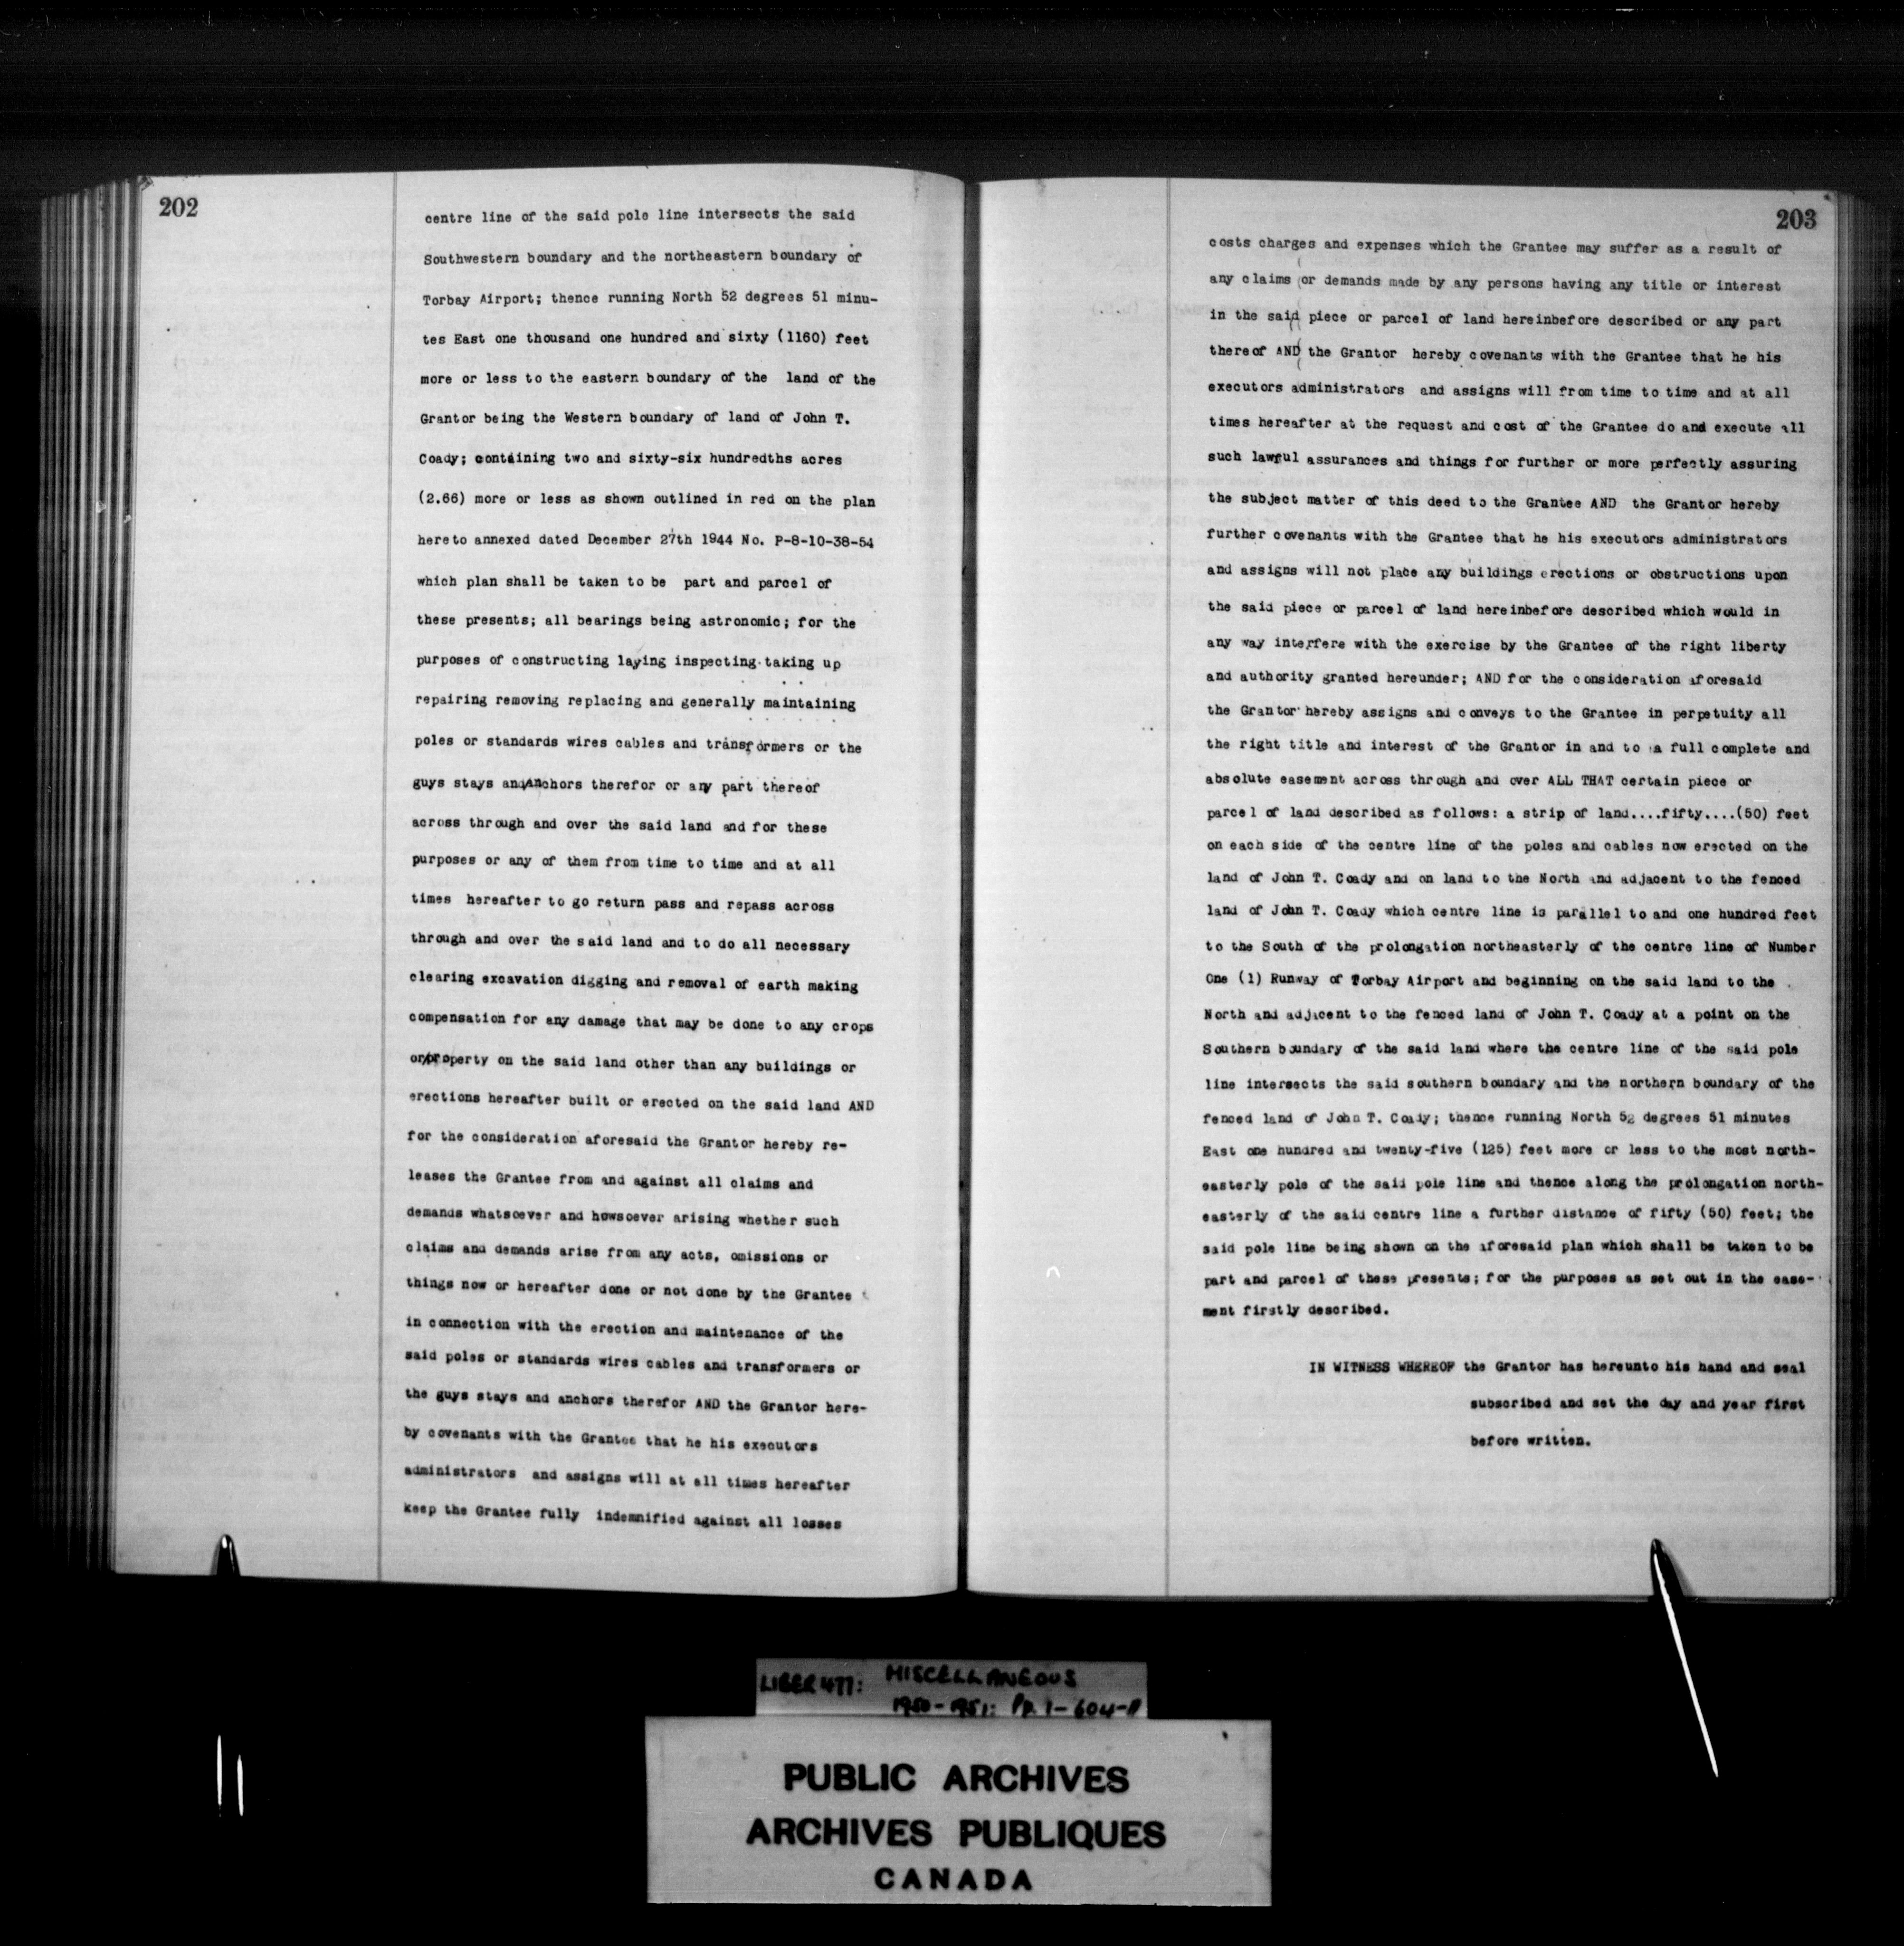 202
centre line of the said pole line intersects the said
Southwestern boundary and the northeastern boundary of
Torbay Airport; thence running North 52 degrees 51 minu-
tes East one thousand one hundred and sixty (1160) feet
more or less to the eastern boundary of the land of the
Grantor being the Western boundary of land of John T.
Coady; containing two and sixty-six hundredths acres
(2.66) more or less as shown outlined in red on the plan
hereto annexed dated December 27th 1944 No. P-8-10-38-54
which plan shall be taken to be part and parcel of
these presents; all bearings being astronomic; for the
purposes of constructing laying inspecting taking up
repairing removing replacing and generally maintaining
poles or standards wires cables and transformers or the
guys stays and/anchors therefor or any part thereof
across through and over the said land and for these
purposes or any of them from time to time and at all
times hereafter to go return pass and repass across
through and over the said land and to do all necessary
clearing excavation digging and removal of earth making
compensation for any damage that may be done to any crops
or/property on the said land other than any buildings or
erections hereafter built or erected on the said land AND
for the consideration aforesaid the Grantor hereby re-
leases the Grantee from and against all claims and
demands whatsoever and howsoever arising whether such
claims and demands arise from any acts, omissions or
things now or hereafter done or not done by the Grantee
in connection with the erection and maintenance of the
said poles or standards wires cables and transformers or
the guys stays and anchors therefor AND the Grantor here-
by covenants with the Grantee that he his executors
administrators and assigns will at all times hereafter
keep the Grantee fully indemnified against all losses
203
costs charges and expenses which the Grantee may suffer as a result of
any claims or demands made by any persons having any title or interest
in the said piece or parcel of land hereinbefore described or any part
thereof AND the Grantor hereby covenants with the Grantee that he his
executors administrators and assigns will from time to time and at all
times hereafter at the request and cost of the Grantee do and execute all
such lawful assurances and things for further or more perfectly assuring
the subject matter of this deed to the Grantee AND the Grantor hereby
further covenants with the Grantee that he his executors administrators
and assigns will not place any buildings erections or obstructions upon
the said piece or parcel of land hereinbefore described which would in
any way interfere with the exercise by the Grantee of the right liberty
and authority granted hereunder; AND for the consideration aforesaid
the Grantor hereby assigns and conveys to the Grantee in perpetuity all
the right title and interest of the Grantor in and to a full complete and
absolute easement across through and over ALL THAT certain piece or
parcel of land described as follows: a strip of land....fifty....(50) feet
on each side of the centre line of the poles and cables now erected on the
land of John T. Coady and on land to the North and adjacent to the fenced
land of John T. Coady which centre line is parallel to and one hundred feet
to the South of the prolongation northeasterly of the centre line of Number
One (1) Runway of Torbay Airport and beginning on the said land to the
North and adjacent to the fenced land of John T. Coady at a point on the
Southern boundary of the said land where the centre line of the said pole
line intersects the said southern boundary and the northern boundary of the
fenced land of John T. Coady; thence running North 52 degrees 51 minutes
East one hundred and twenty-five (125) feet more or less to the most north-
easterly pole of the said pole line and thence along the prolongation north-
easterly of the said centre line a further distance of fifty (50) feet; the
said pole line being shown on the aforesaid plan which shall be taken to be
part and parcel of these presents; for the purposes as set out in the ease-
ment firstly described.
IN WITNESS WHEREOF the Grantor has hereunto his hand and seal
subscribed and set the day and year first
before written.
LIBER 477: MISCELLANEOUS
1950-1951: Pp. 1-604-A
PUBLIC ARCHIVES
ARCHIVES PUBLIQUES
CANADA